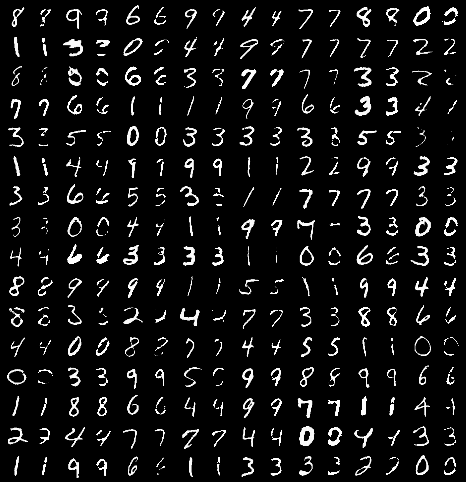 8 8 9 9 6 6 9 9 4 4 7 7 8 8 0 0
1 1 3 3 0 0 4 4 9 9 7 7 7 7 2 2
8 8 0 0 6 6 3 3 7 7 7 7 3 3 2 2
7 7 6 6 1 1 1 1 9 9 6 6 3 3 4 4
3 3 5 5 0 0 3 3 3 3 3 3 5 5 3
1 1 4 4 9 9 9 9 1 1 2 2 9 9 3 3
3 3 6 6 5 5 3 3 1 1 7 7 7 7 3 3
3 3 0 0 4 4 1 1 9 9 7 3 3 0 0
4 4 6 6 3 3 3 3 1 1 0 0 6 6 3 3
8 8 9 9 9 9 1 1 5 5 1 1 9 9 4 4
8 8 3 3 2 2 4 7 7 3 3 8 8 6 6
4 4 0 0 8 8 7 7 4 4 5 5 1 1 0 0
0 0 3 3 9 9 5 5 9 9 8 8 9 9 6 6
1 1 8 8 6 6 4 4 9 9 7 7 1 1 4 4
2 2 4 4 7 7 7 7 4 4 0 0 4 4 3 3
1 1 9 9 6 6 1 1 3 3 3 3 2 2 0 0